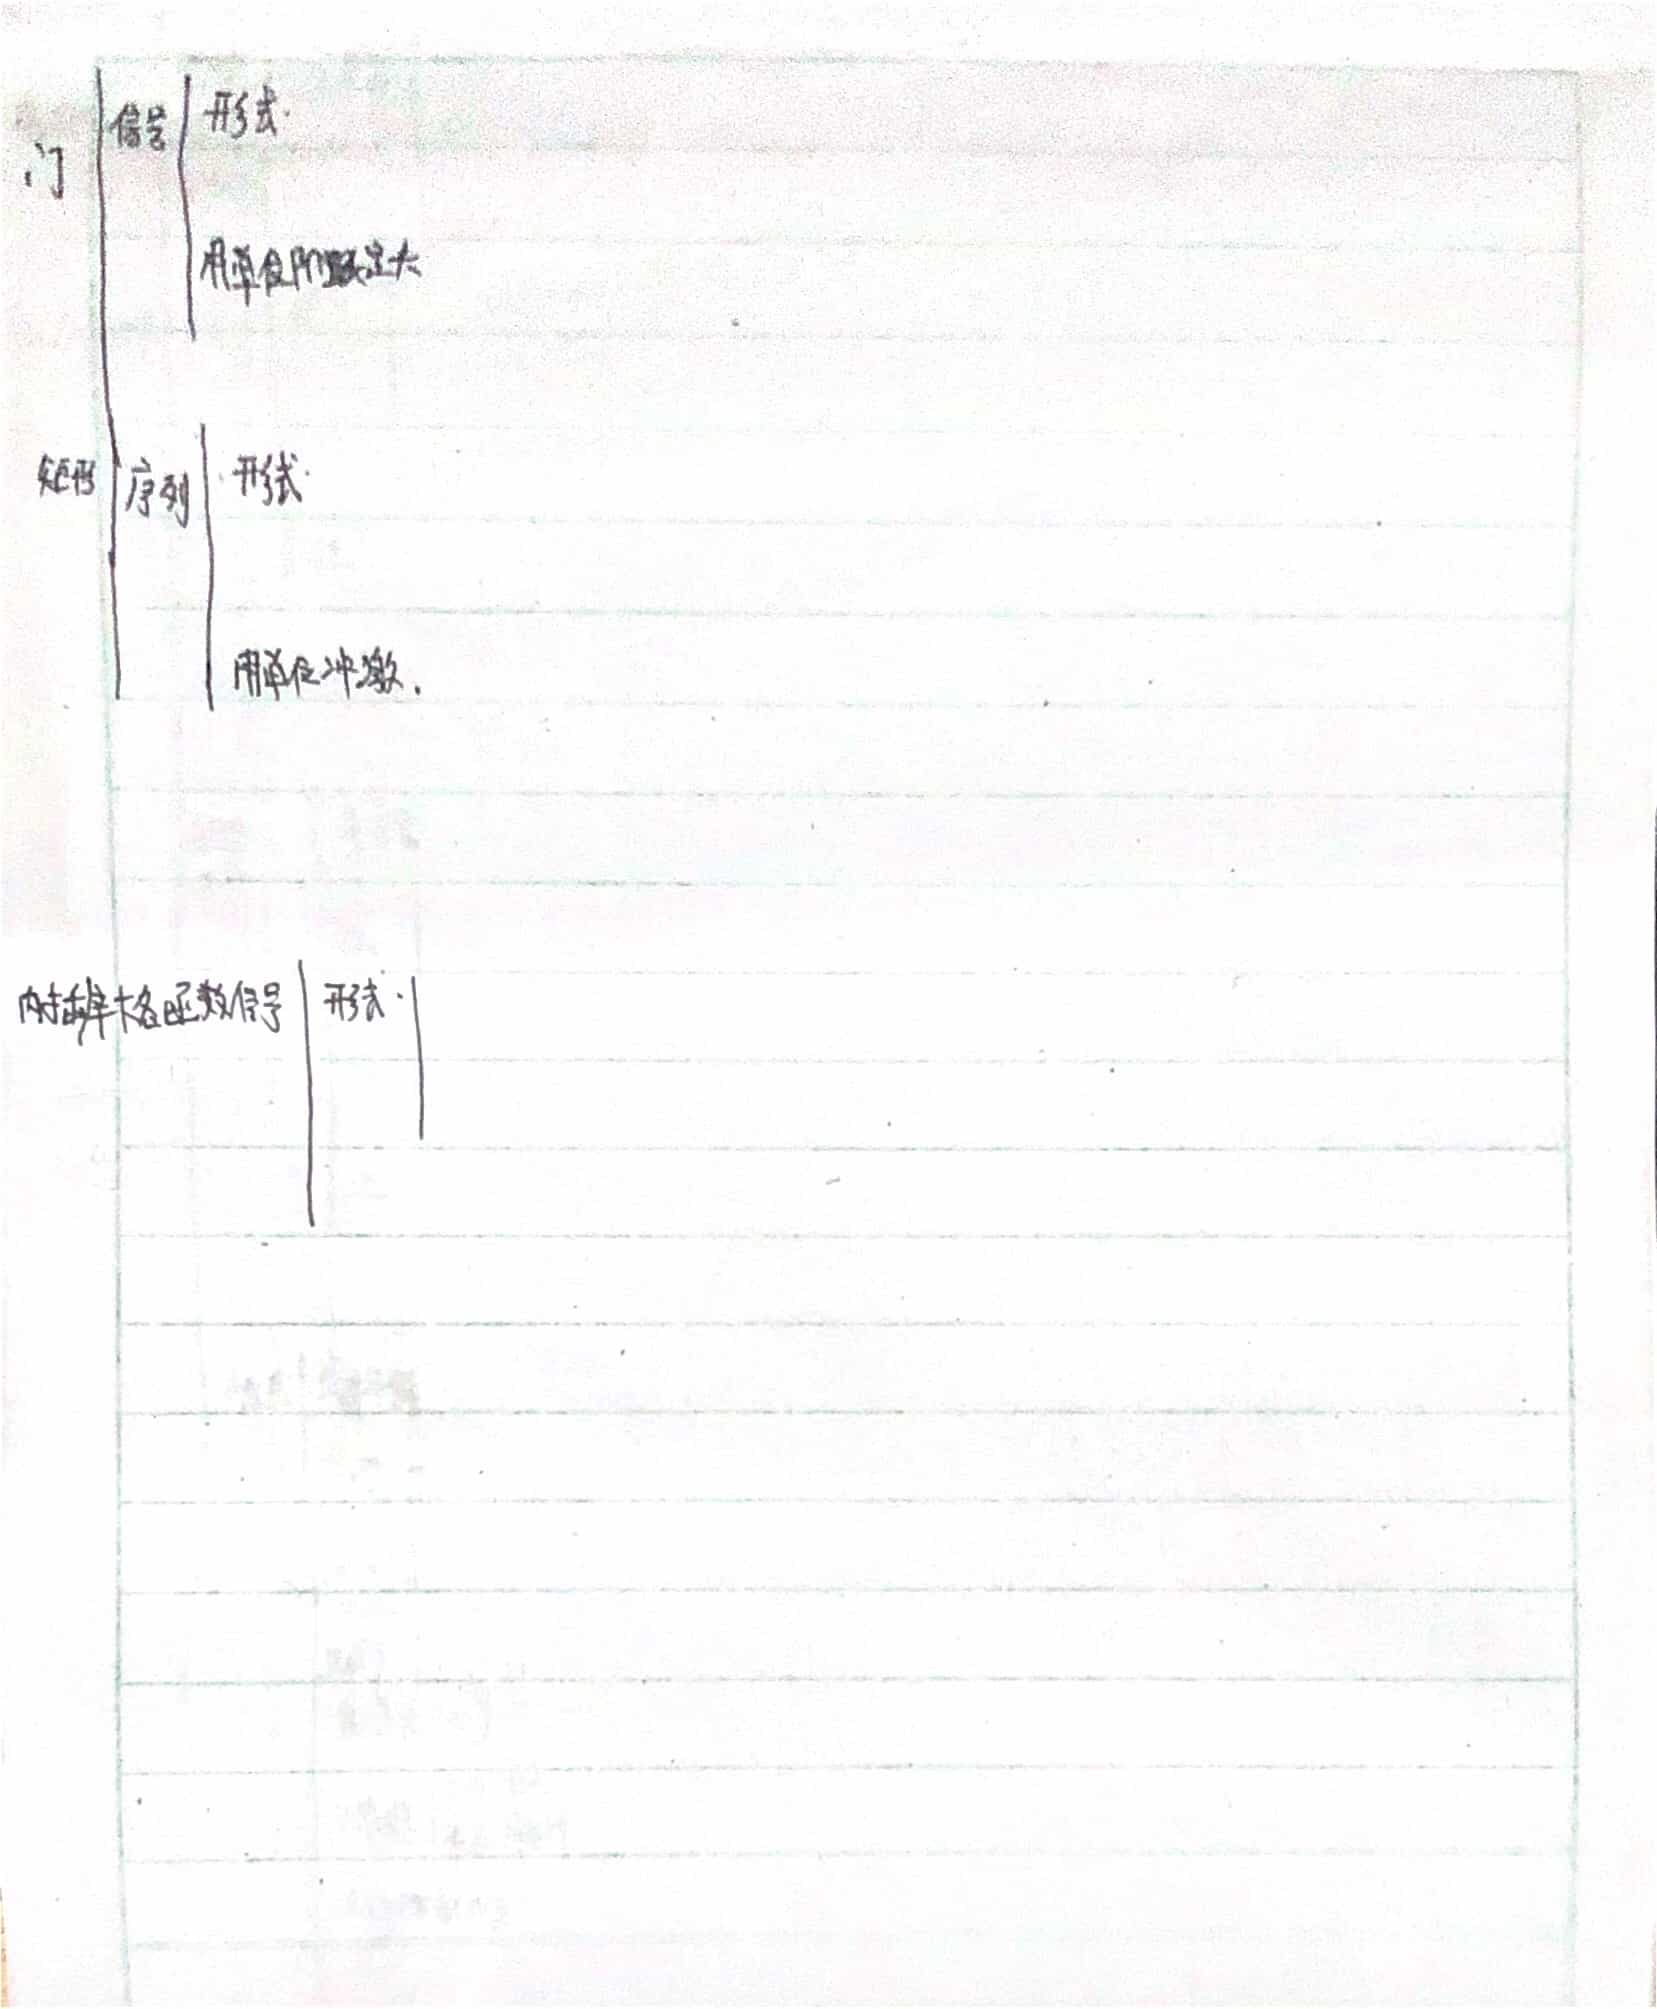 门
信号
形式.
用单位阶跃
矩形
序列
形式.
用单位冲激.
内插辛格函数信号
形式.